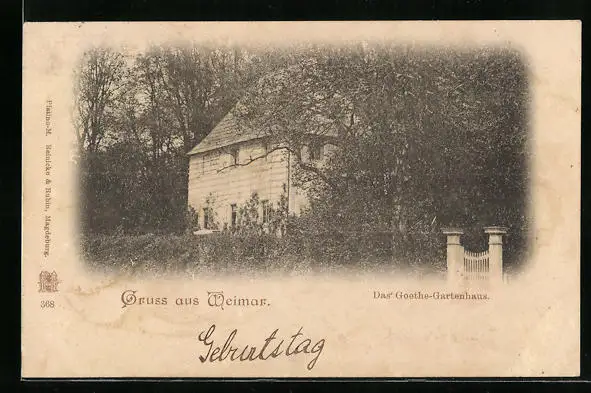 Platino-M. Reinicke & Rubin, Magdeburg.
368
Gruss aus Weimar.
Das Goethe-Gartenhaus.
Geburtstag